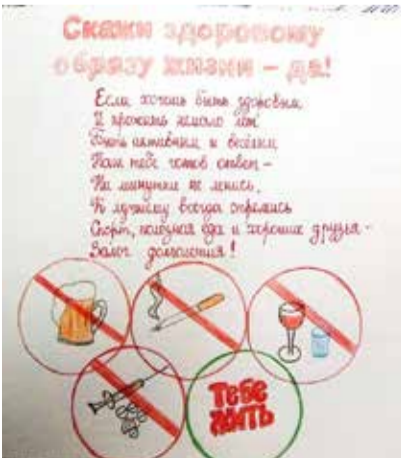 Скажи здоровому
образу жизни – да!
Если хочешь быть здоровым
И прожить немало лет
Быть активным и весёлым
Нам тебе готов ответ –
Ни минутки не ленись,
К лучшему всегда стремись
Спорт, полезная еда и хорошие друзья –
Залог долголетия!
Тебе
жить